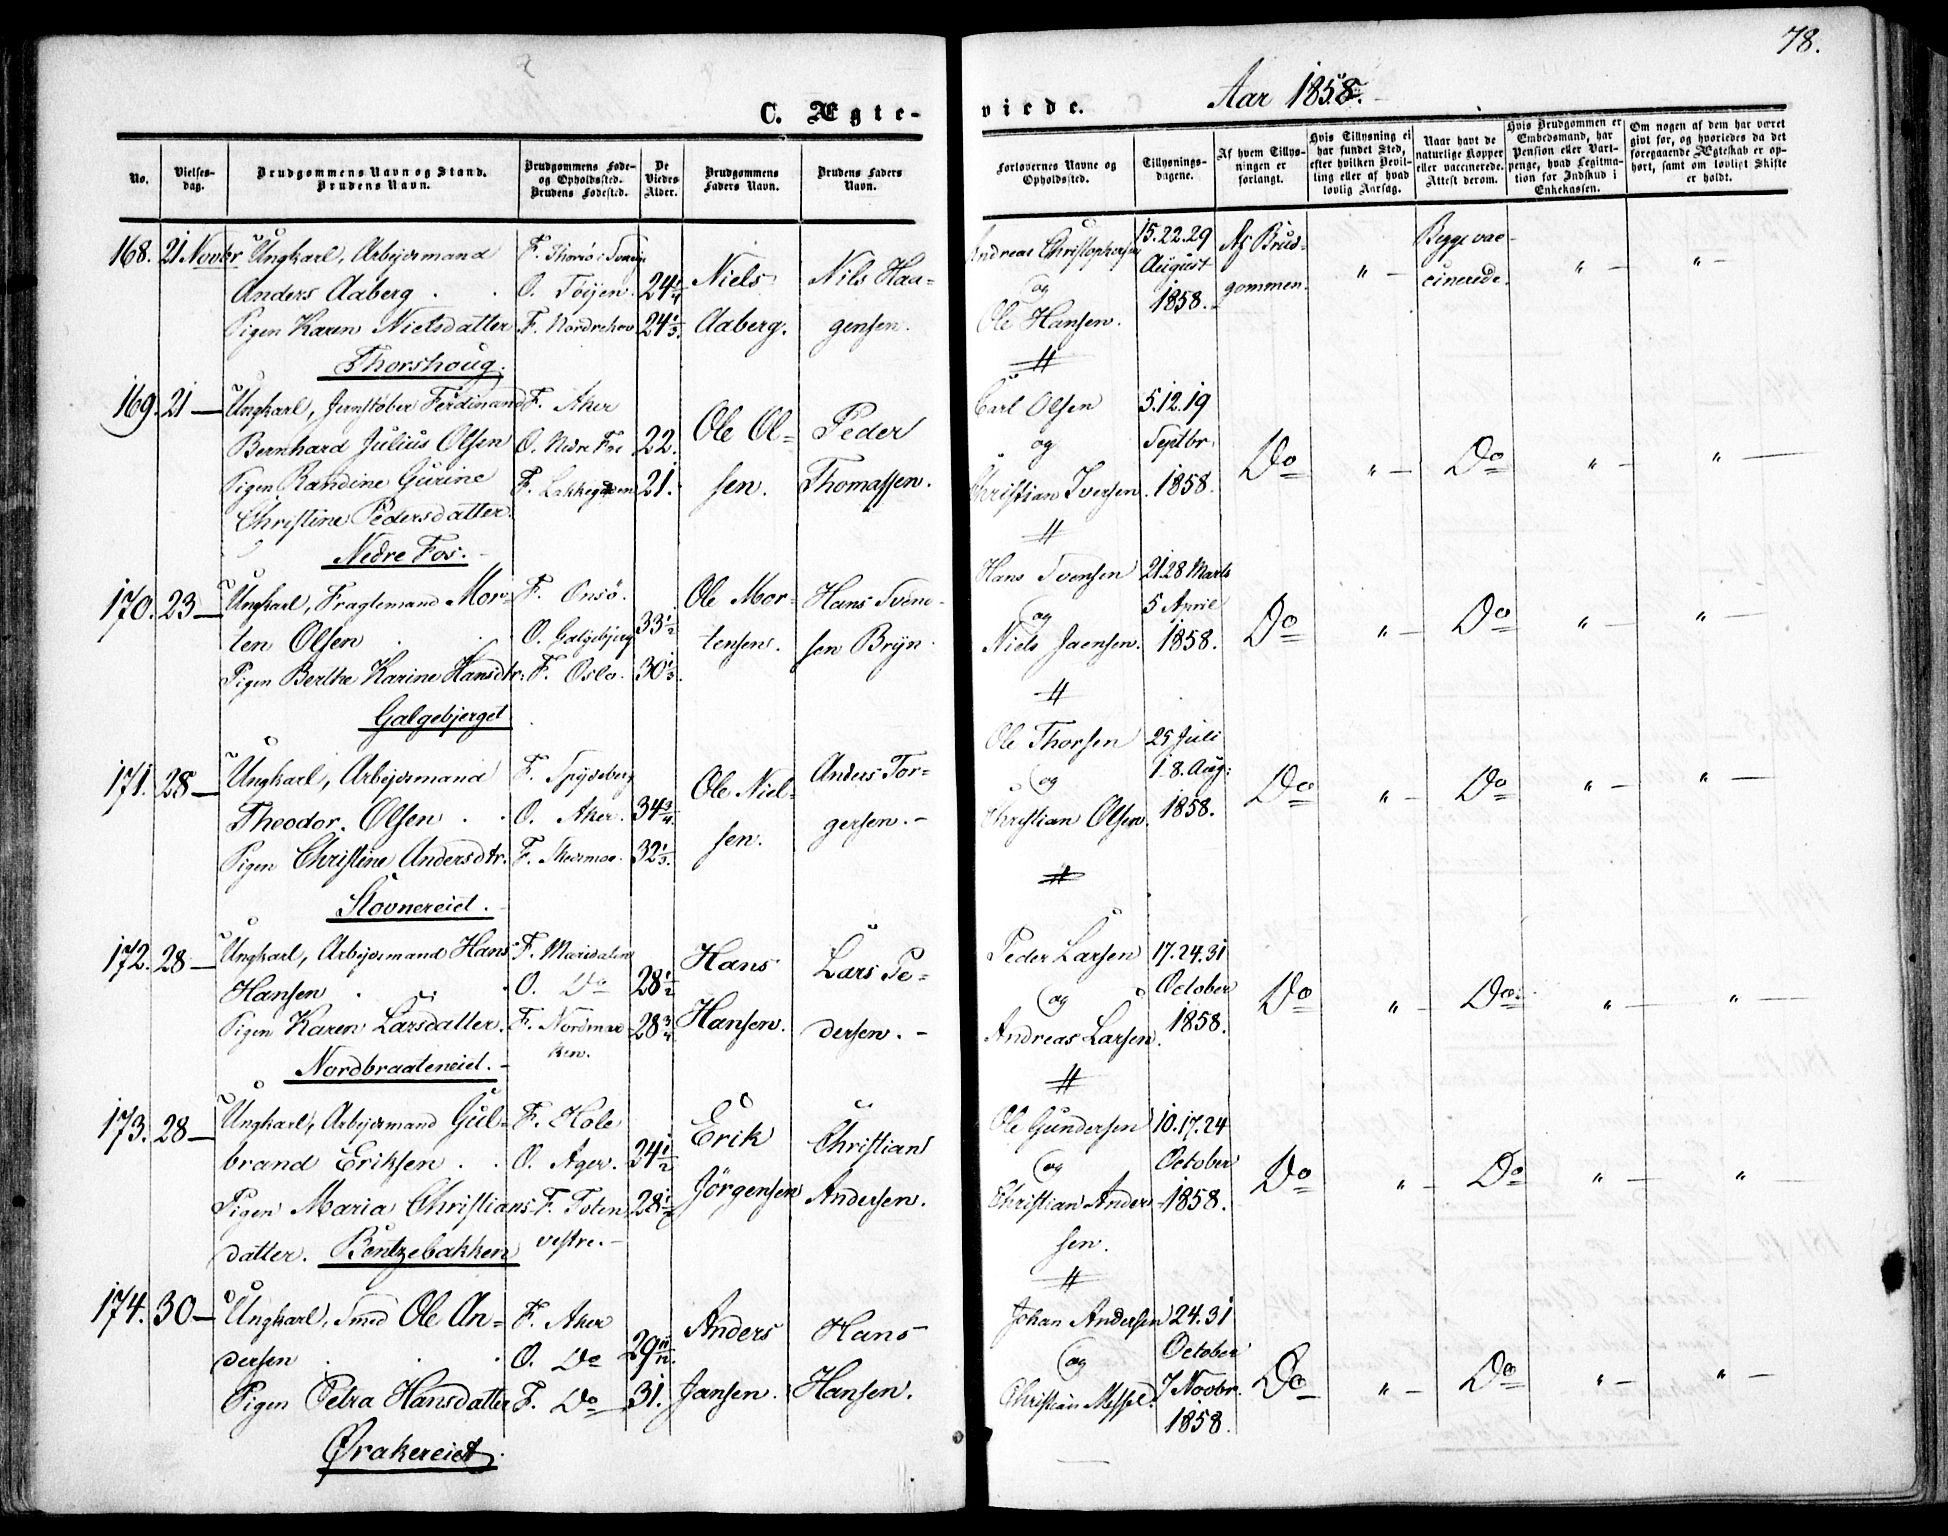 78.
C. Ægte-
viede.
Aar 1858.
No.
Vielses-
dag.
Brudgommens Navn og Stand.
Brudens Navn.
Brudgommens Føde-
og Opholdssted.
Brudens Fødested.
De
Viedes
Alder.
Brudgommens
Faders Navn.
Brudens Faders
Navn.
Forlovernes Navne og
Opholdssted.
Tillysnings-
dagene.
Af hvem Tillys-
ningen er
forlangt.
Hvis Tillysning ei
har fundet Sted,
efter hvilken Bevil-
ling eller af hvad
lovlig Aarsag.
Naar havt de
naturlige Kopper
eller vaccinerede.
Attest derom.
Hvis Brudgommen er
Embedsmand, har
Pension eller Vart-
penge, hvad Legitima-
tion for Indskud i
Enkekassen.
Om nogen af dem har været
givt før, og hvorledes da det
foregaaende Ægteskab er op-
hørt, samt om lovligt Skifte
er holdt.
168. 21 Novbr Ungkarl, Arbejdsmand F. Niels Nils Haa- Andreas Christophersen 15.22.29 Af Brud- Begge vac-
Anders Aaberg . . O. Töijen. 24 1/4 og August gommen. " - cinerede. " - " -
Pigen Karen Nielsdatter F. Nordrehov 24 1/3. Aaberg. gensen. Ole Hansen. 1858.
Thorshoug.
169. 21 - Ungkarl, Jernstøber Ferdinand F. Aker Ole Ol- Peder Carl Olsen 5.12.19
Bernhard Julius Olsen O. Nedre Fos 22. og Septbr. Do " - Do " - " -
Pigen Randine Gurine F. 21. sen. Thomassen. Christian Iversen. 1858.
Christine Pedersdatter.
Nedre Fos.
170. 23 - Ungkarl, Fragtemand Mor- F. Onsö. Ole Mor- Hans Svend- Hans Svensen 21.28 Marts
ten Olsen . . O. Galgebjerg 33 1/2 tensen. sen Bryn. og 5 April Do " - Do " - " -
Pigen Berthe Karine Hansdtr. F. Oslo. 30 1/3. Niels Jaensen. 1858.
Galgebjerget.
171. 28 - Ungkarl, Arbejdsmand F. Spydeberg Ole Niel- Anders Tor- Ole Thorsen 25 Juli
Theodor Olsen . . O. Aker. 34 3/4. og 1. 8. Aug: Do " - Do " - " -
Pigen Christine Andersdtr. F. 32 1/3. sen. gersen. - Christian Olsen. 1858.
Stovnereiet.
172. 28 - Ungkarl, Arbejdsmand Hans F. Maridalen Hans Lars Pe- Peder Larsen 17.24.31
Hansen . . . O. Do 28 1/2 og October Do " - Do. " - " -
Pigen Karen Larsdatter. F. Nordmar- 28 3/4 Hansen. dersen. - Andreas Larsen. 1858.
ken.
Nordbraateneiet. -
173. 28 - Ungkarl, Arbejdsmand Gul- F. Hole Erik Christian Ole Gundersen 10.17.24
brand Eriksen . . O. Ager. 24 1/2 og October Do " - Do " - " -
Pigen Maria Christians- F. Toten 28 1/2 Jörgensen Andersen. Christian Ander- 1858.
datter. Bentzebakken vestre. - sen.
174. 30 - Ungkarl, Smed Ole An- F. Aker Anders Hans Johan Andersen 24.31
dersen . . . O. Do 29 11/12. og October Do " - Do " - " -
Pigen Petra Hansdatter F. Do 31. Jansen. Hansen. Christian Messel. 7 Novbr.
1858.
Ørakereiet.